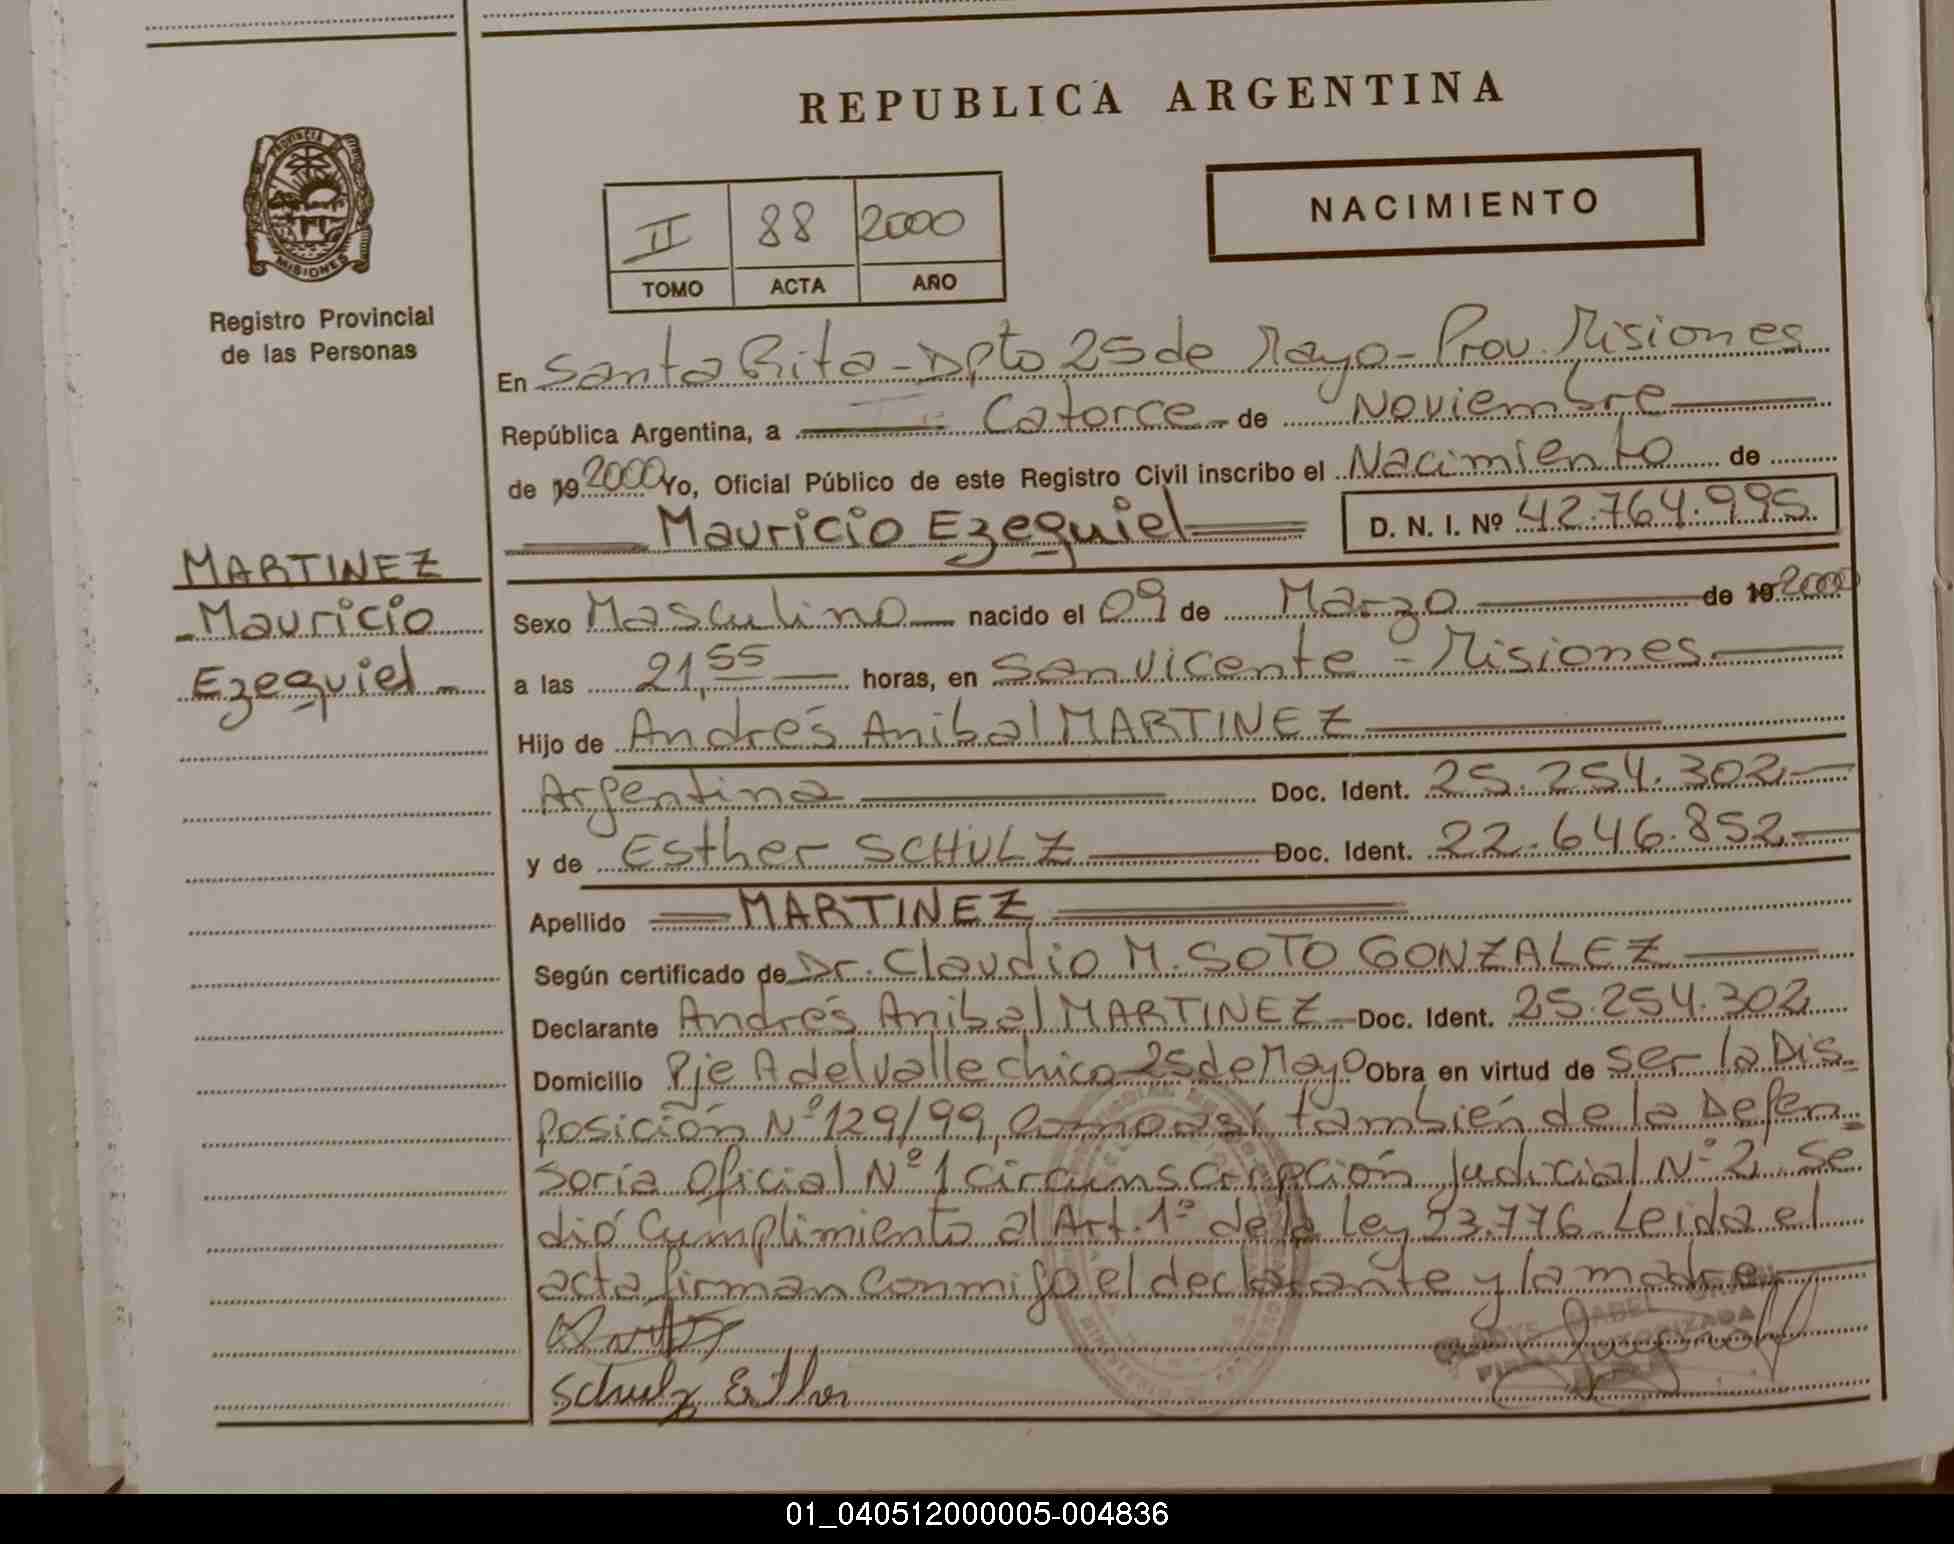 REPUBLICA ARGENTINA
PROVINCIA DE
MISIONES
Registro Provincial
de las Personas
II 88 2000
TOMO ACTA AÑO
NACIMIENTO
En Santa Rita - Dpto 25 de Mayo - Prov. Misiones
República Argentina, a Catorce - de Noviembre
de 19 2000 Yo, Oficial Público de este Registro Civil inscribo el Nacimiento de
Mauricio Ezequiel D. N. I. Nº 42.764.995
MARTINEZ
Mauricio
Ezequiel
Sexo Masculino nacido el 09 de Marzo de 19 2000
a las 21,55 horas, en San Vicente - Misiones
Hijo de Andrés Anibal MARTINEZ
Argentina Doc. Ident. 25.254.302
y de Esther SCHULZ Doc. Ident. 22.646.852
Apellido MARTINEZ
Según certificado de Dr. Claudio M. SOTO GONZALEZ
Declarante Andrés Anibal MARTINEZ Doc. Ident. 25.254.302
Domicilio Pje A del Valle chico 25 de Mayo Obra en virtud de ser la Dis-
posición Nº 129/99, como así también de la Defen=
soría Oficial Nº 1 Circunscripción Judicial Nº 2 Se
dió Cumplimiento al Art. 1º de la Ley 23.776 Leida el
acta firman conmigo el declarante y la madre
Schulz Esther